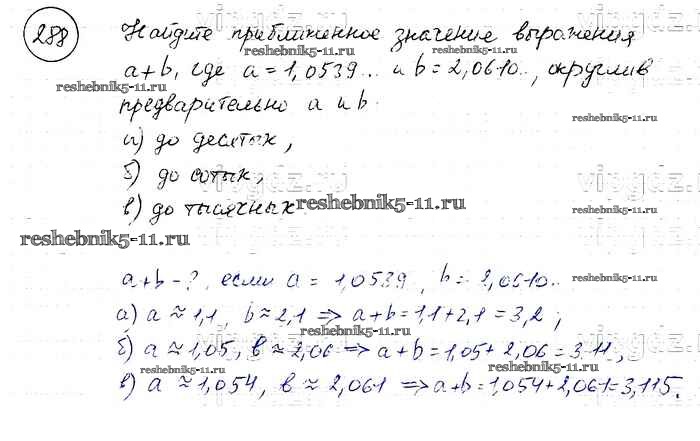 288 Найдите приближенное значение выражения
reshebnik5-11.ru
reshebnik5-11.ru
a+b, где a = 1,0539... и b = 2,0610..., округлив
reshebnik5-11.ru
reshebnik5-11.ru
предварительно a и b.
а) до десятых,
б) до сотых,
в) до тысячных
reshebnik5-11.ru
reshebnik5-11.ru
a+b - ?, если a = 1,0539.., b = 2,0610..
reshebnik5-11.ru
а) a ≈ 1,1, b ≈ 2,1 ⇒ a+b = 1,1+2,1 = 3,2;
reshebnik5-11.ru
б) a ≈ 1,05, b ≈ 2,06 ⇒ a+b = 1,05+2,06 = 3,11,
reshebnik5-11.ru
reshebnik5-11.ru
в) a ≈ 1,054, b ≈ 2,061 ⇒ a+b = 1,054+2,061 = 3,115.